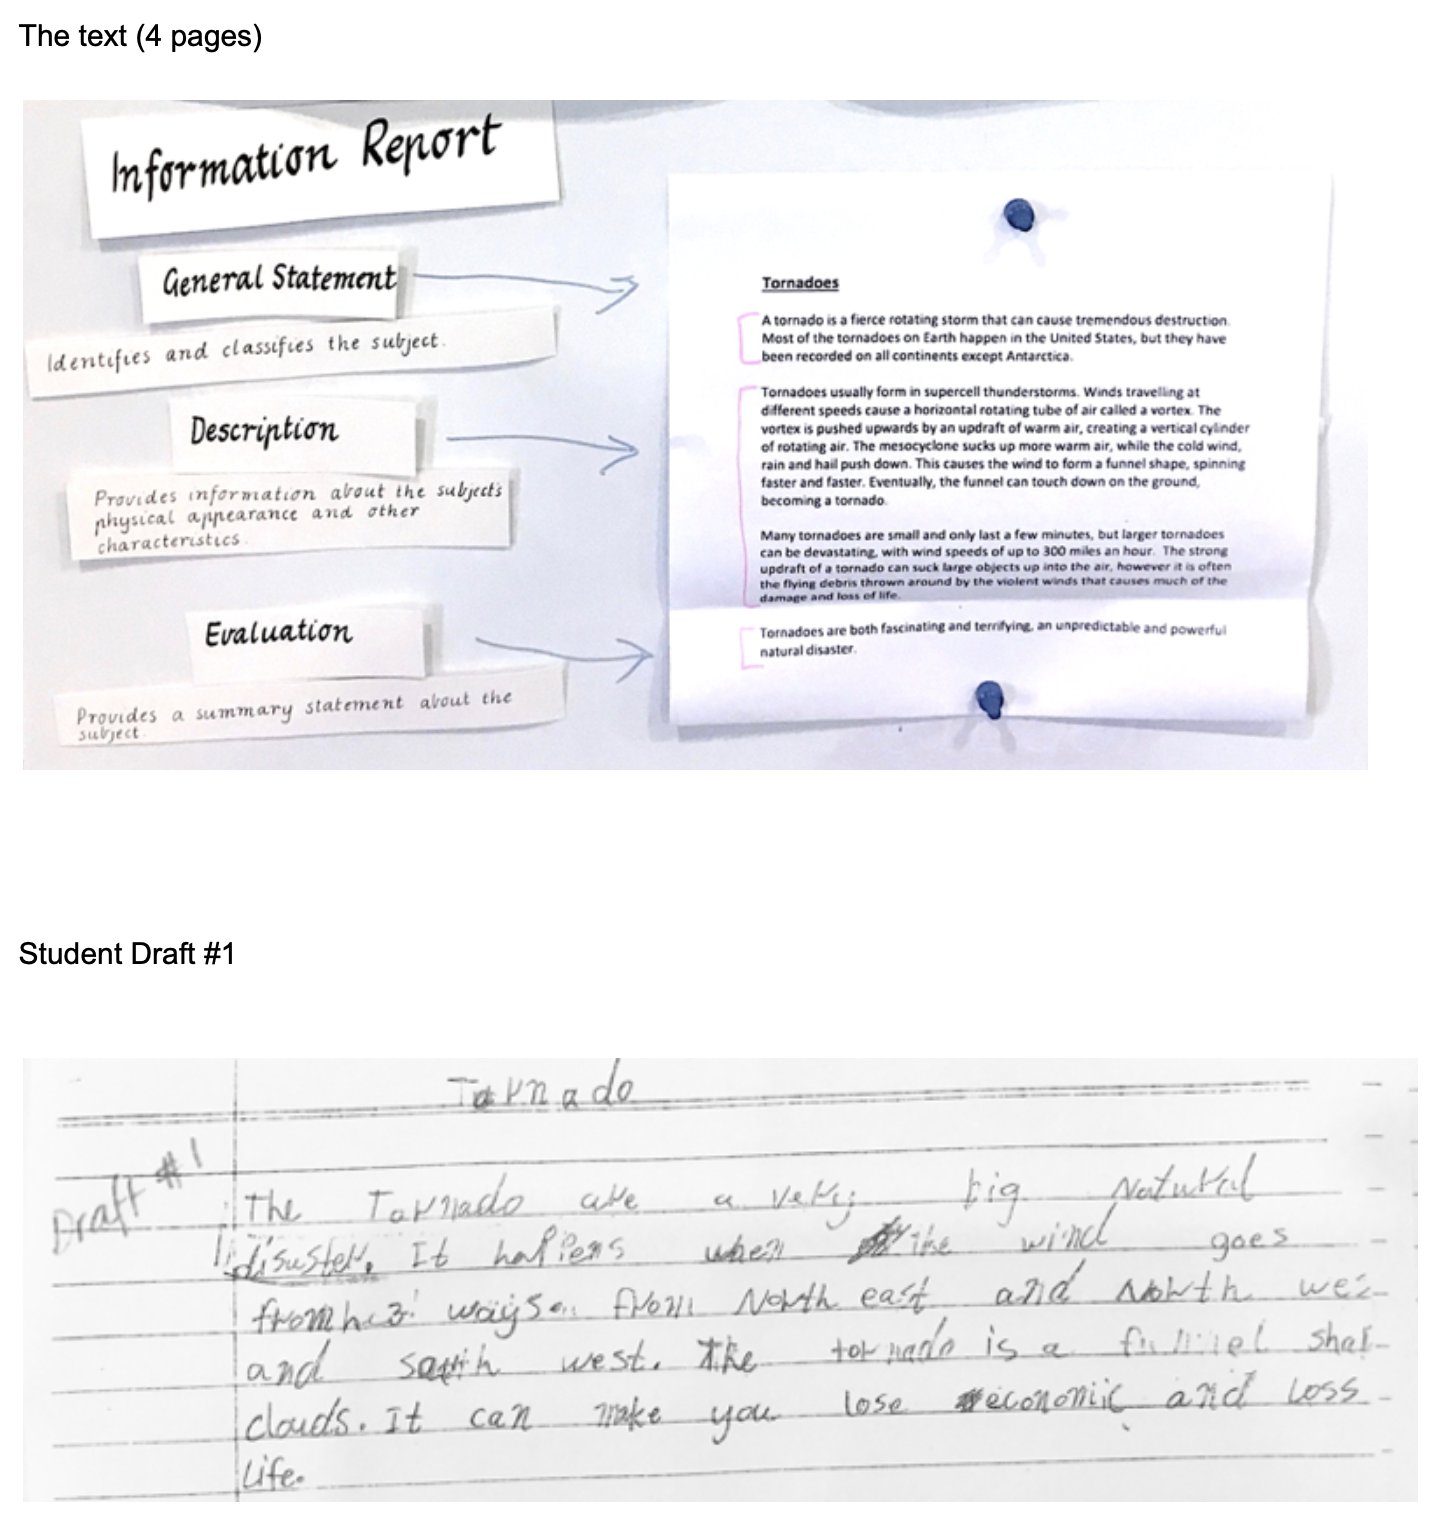 The text (4 pages)
Information Report
General Statement
Identifies and classifies the subject.
Description
Provides information about the subject's
physical appearance and other
characteristics
Evaluation
Provides a summary statement about the
subject
Tornadoes
A tornado is a fierce rotating storm that can cause tremendous destruction.
Most of the tornadoes on Earth happen in the United States, but they have
been recorded on all continents except Antarctica.
Tornadoes usually form in supercell thunderstorms. Winds travelling at
different speeds cause a horizontal rotating tube of air called a vortex. The
vortex is pushed upwards by an updraft of warm air, creating a vertical cylinder
of rotating air. The mesocyclone sucks up more warm air, while the cold wind,
rain and hail push down. This causes the wind to form a funnel shape, spinning
faster and faster. Eventually, the funnel can touch down on the ground,
becoming a tornado.
Many tornadoes are small and only last a few minutes, but larger tornadoes
can be devastating, with wind speeds of up to 300 miles an hour. The strong
updraft of a tornado can suck large objects up into the air, however it is often
the flying debris thrown around by the violent winds that causes much of the
damage and loss of life.
Tornadoes are both fascinating and terrifying, an unpredictable and powerful
natural disaster.
Student Draft #1
Tornado
Draft #1
The Tornado are a very big Natural
disuster. It happens when the wind goes
from 3 ways from North east and North
and south west. The tornado is a funnel
clouds. It can make you lose economic and Loss
Life.